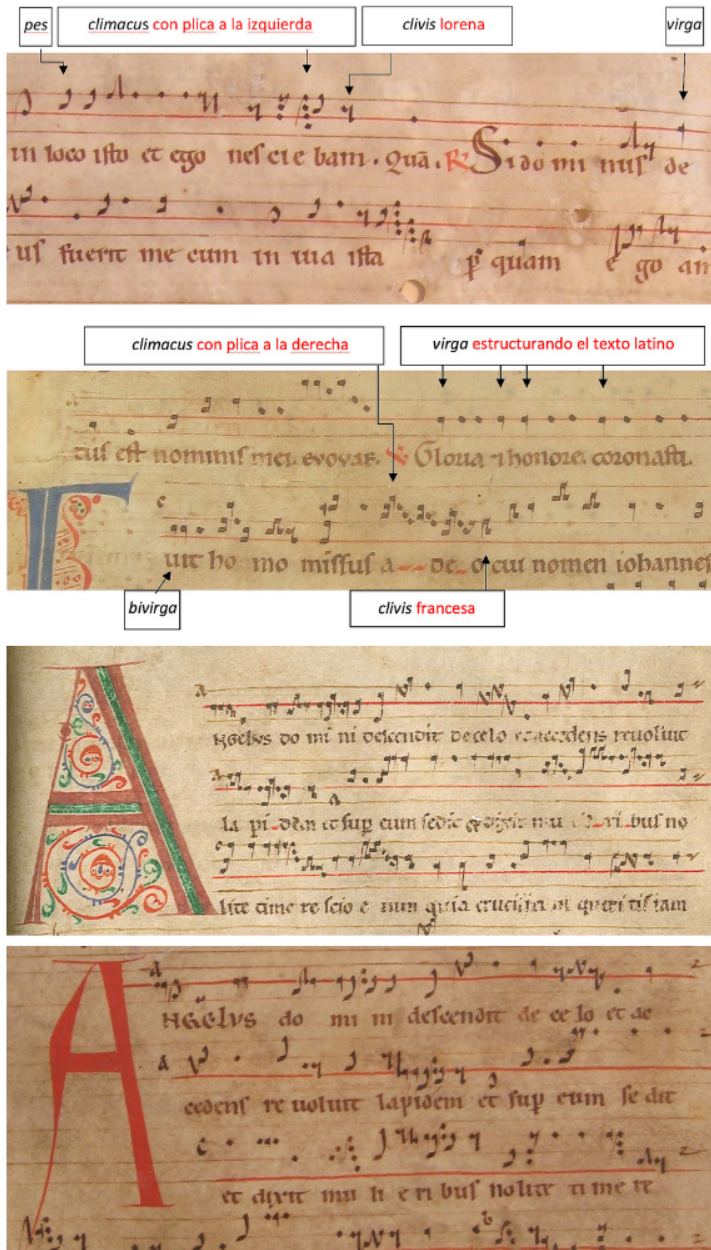 pes climacus con plica a la izquierda clivis lorena virga
in loco isto et ego nesciebam. Quā. R Si do mi nus de
us fuerit me cum in uia ista p quam e go am
climacus con plica a la derecha virga estructurando el texto latino
tus est nominis mei. evovae. Gloria honore coronasti.
T uit ho mo missus a de o cui nomen iohannes
bivirga clivis francesa
A ngelus do mi ni descendit de celo reuoluit
la pi dem et sup eum sedit bus no
lite time re scio e nim quia queri tis iam
A NGELVS do mi ni descendit de ce lo et ac
cedens re uoluit lapidem et sup eum se dit
et dixit mu li e ri bus nolite ti me re